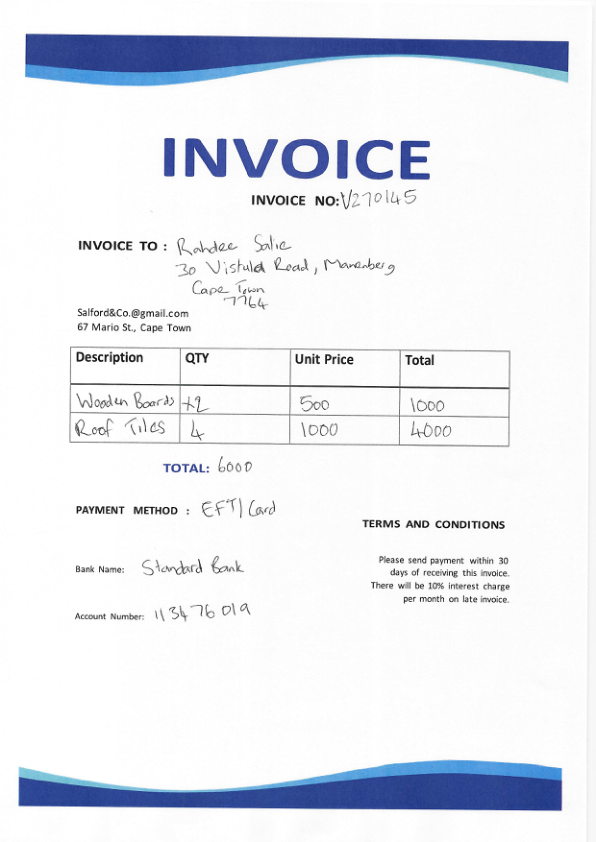 INVOICE
INVOICE NO: V270145
INVOICE TO : Rahdee Salie
30 Vistula Road, Manenberg
Cape Town
7764
Salford&Co.@gmail.com
67 Mario St., Cape Town
Description QTY Unit Price Total
Wooden Boards x2 500 1000
Roof Tiles 4 1000 4000
TOTAL: 6000
PAYMENT METHOD : EFT/Card
TERMS AND CONDITIONS
Please send payment within 30
days of receiving this invoice.
There will be 10% interest charge
per month on late invoice.
Bank Name: Standard Bank
Account Number: 113476019